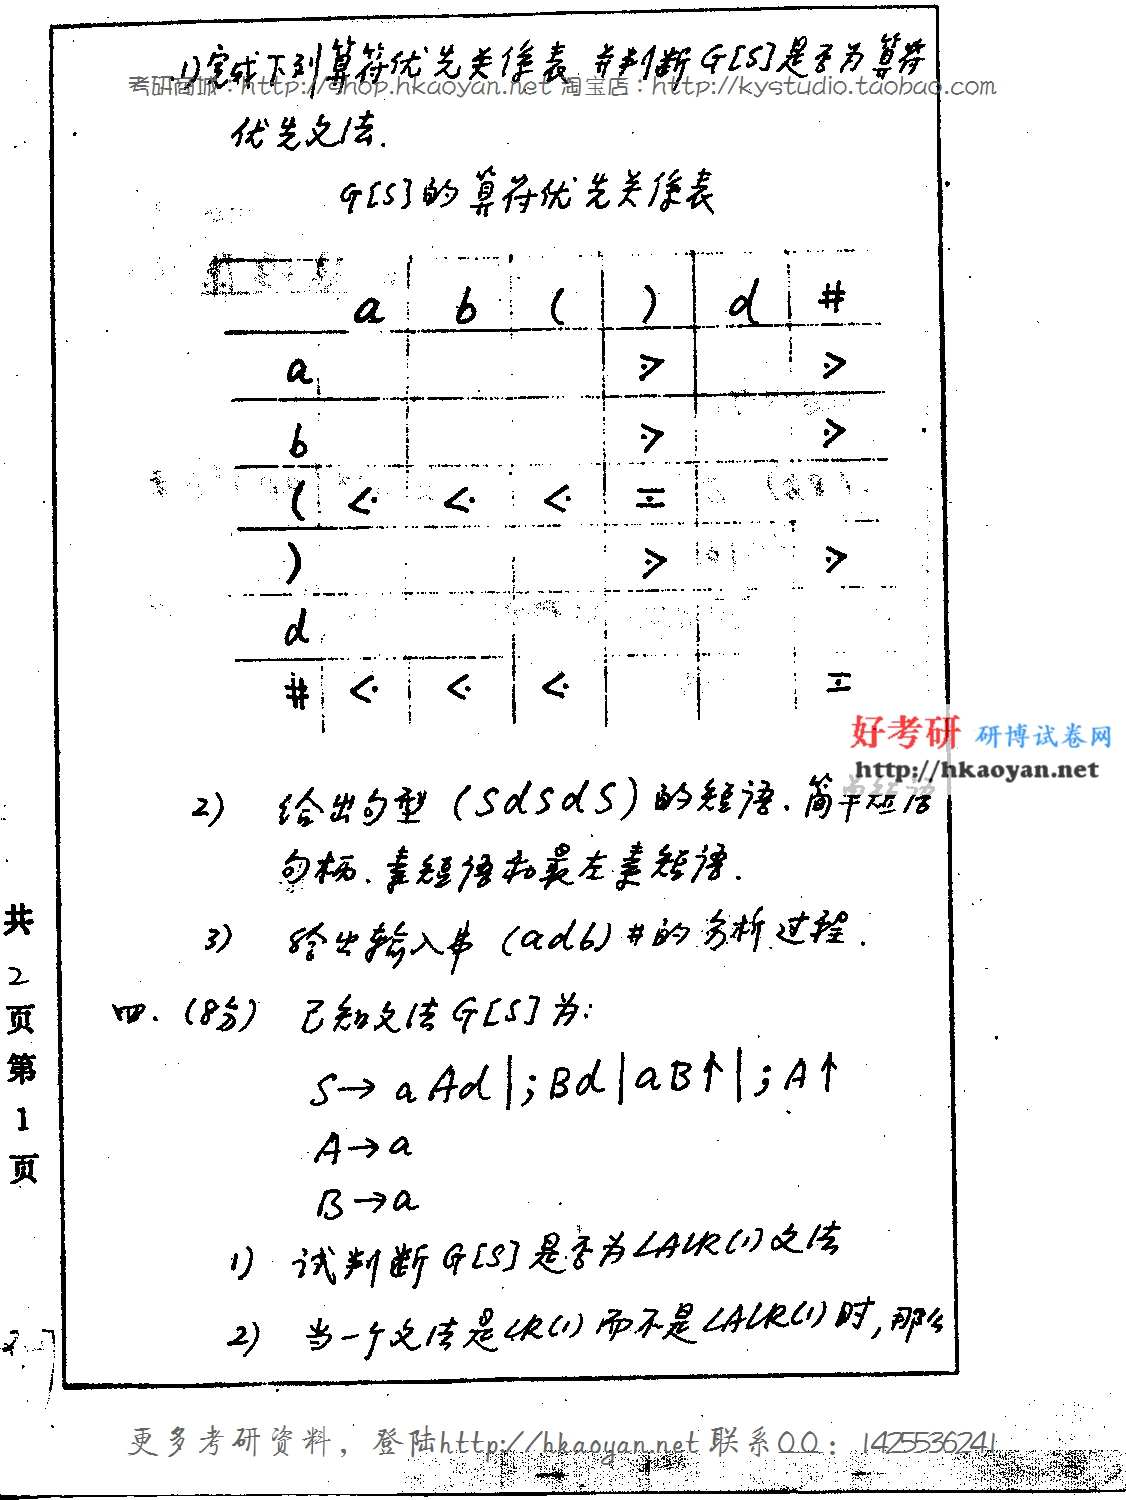 1) 完成下列算符优先关係表 并判断 G[S] 是否为算符
考研商城：http://shop.hkaoyan.net 淘宝店：http://kystudio.taobao.com
优先文法.
G[S] 的算符优先关係表
a b ( ) d #
a ⋗ ⋗
b ⋗ ⋗
( ⋖ ⋖ ⋖ ≐
) ⋗ ⋗
d
# ⋖ ⋖ ⋖ ≐
好考研 研博试卷网
http://hkaoyan.net
2) 给出句型 (SdSdS) 的短语、简单短语
句柄、素短语和最左素短语.
3) 给出输入串 (adb)# 的分析过程.
四. (8分) 已知文法 G[S] 为:
S→aAd|;Bd|aB↑|;A↑
A→a
B→a
1) 试判断 G[S] 是否为 LALR(1) 文法
2) 当一个文法是 LR(1) 而不是 LALR(1) 时, 那么
共2页第1页
更多考研资料，登陆http://hkaoyan.net 联系QQ：1425536241